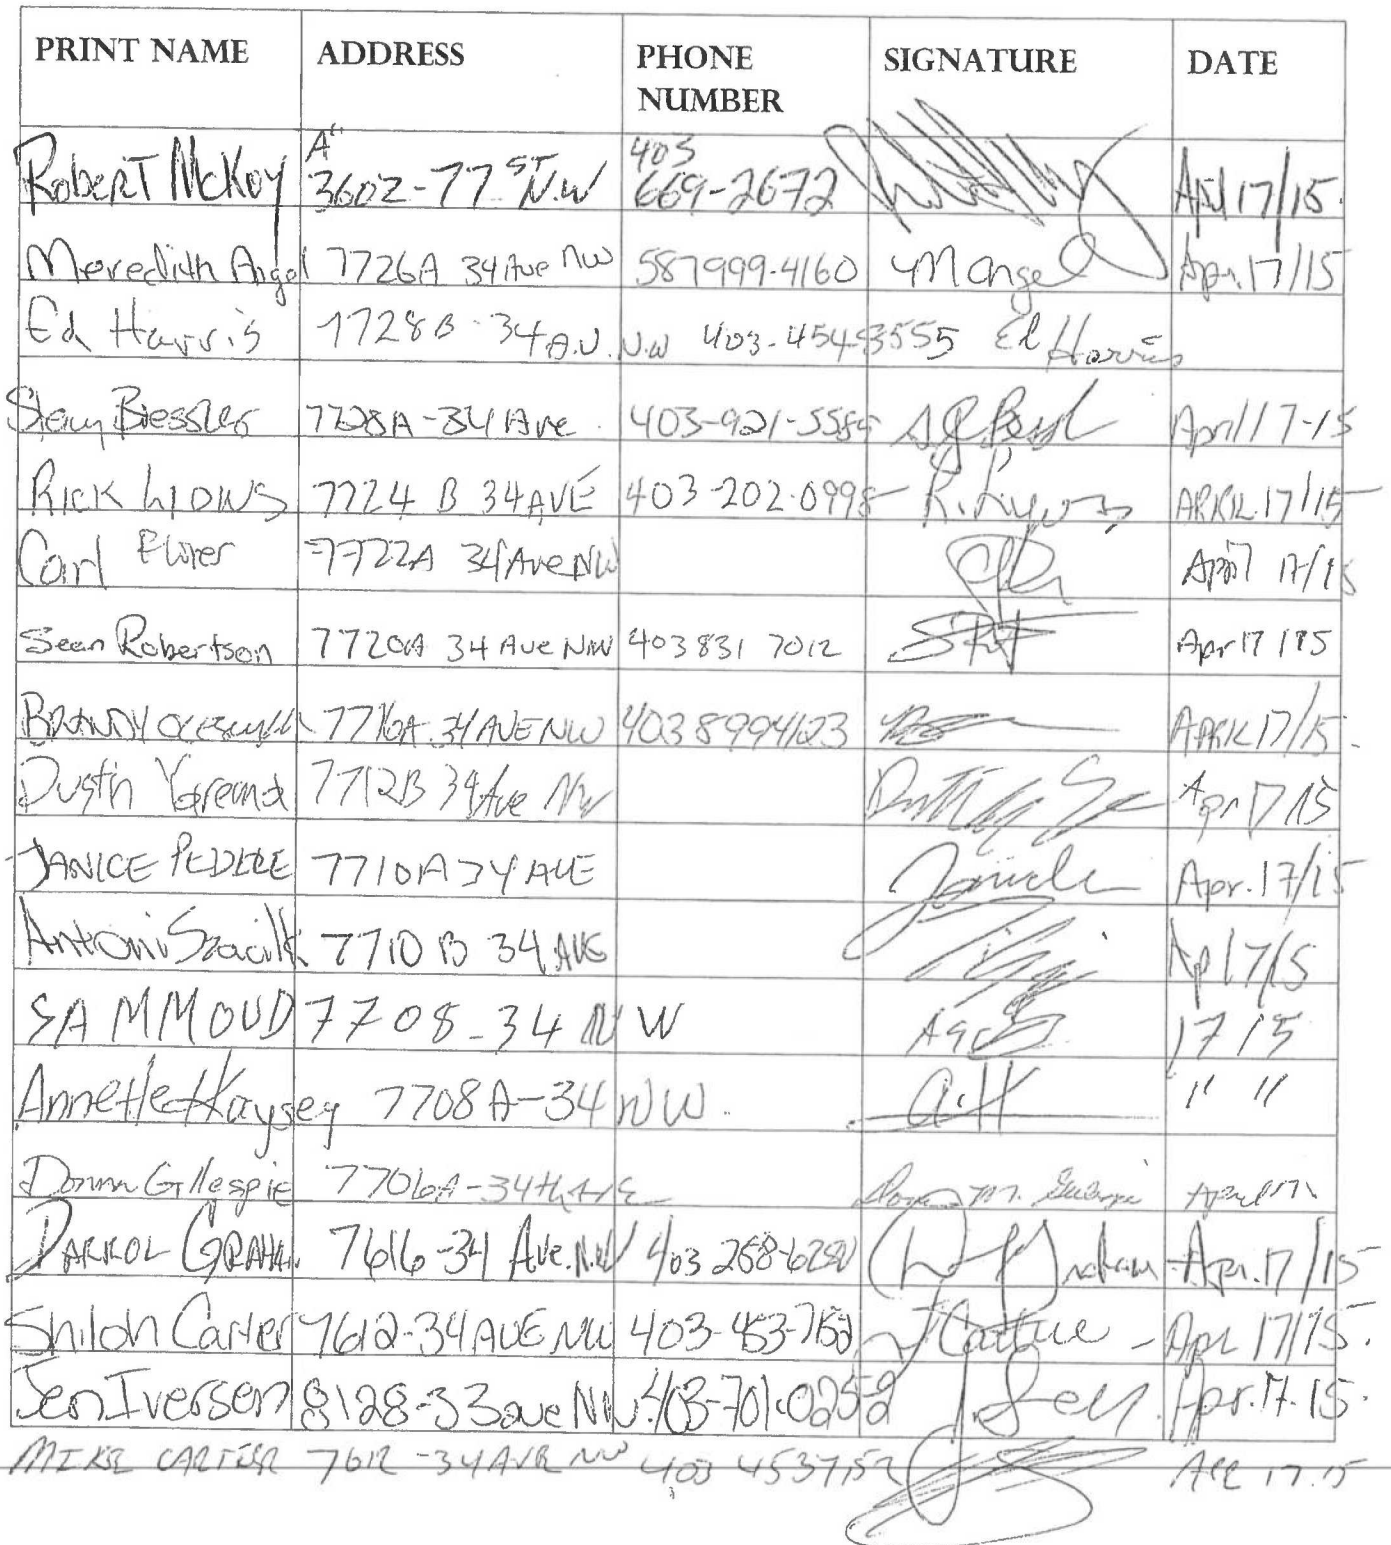 PRINT NAME ADDRESS PHONE NUMBER SIGNATURE DATE
Robert McKoy A" 3602-77 ST N.W 403 669-2672 April 17/15.
Meredith Angel 7726A 34 Ave NW 587999-4160 M Angel Apr. 17/15
Ed Harris 7728B-34 A.V. N.W 403-454-3555 Ed Harris
7728A-34 Ave 403-921- April 17-15
RICK LYONS 7724 B 34 AVE 403-202-0995 R. Lyons APRIL 17/15
Carl 7722A 34 Ave NW April 17/15
Sean Robertson 7720A 34 Ave NW 403 831 7012 Apr 17/15
BRANDY 34 AVE NW 403 8994123 APRIL 17/15.
Dustin 7712B 34 Ave NW Apr 17/15
JANICE PEDDLE 7710A 34 AVE Janice Apr. 17/15
Antoni 7710 B 34 AVE Ap 17/15
SAMMOUD 7708-34 NW 17 15
Annette Haysey 7708A-34 NW. A.H " "
Donna Gillespie 7706A-34th Ave Donna M. Gillespie April 17
DARROL GRAHAM 7616-34 Ave. N.W 403 258-6280 Graham Apr. 17/15
Shiloh Carter 7612-34 AVE NW 403-453-7152 Apr 17/15.
Jen Iversen 8128-33 ave NW. 403-701-0252 Apr. 17-15.
MIKE CARTER 7612-34 AVE NW 403 4537152 APR 17.15